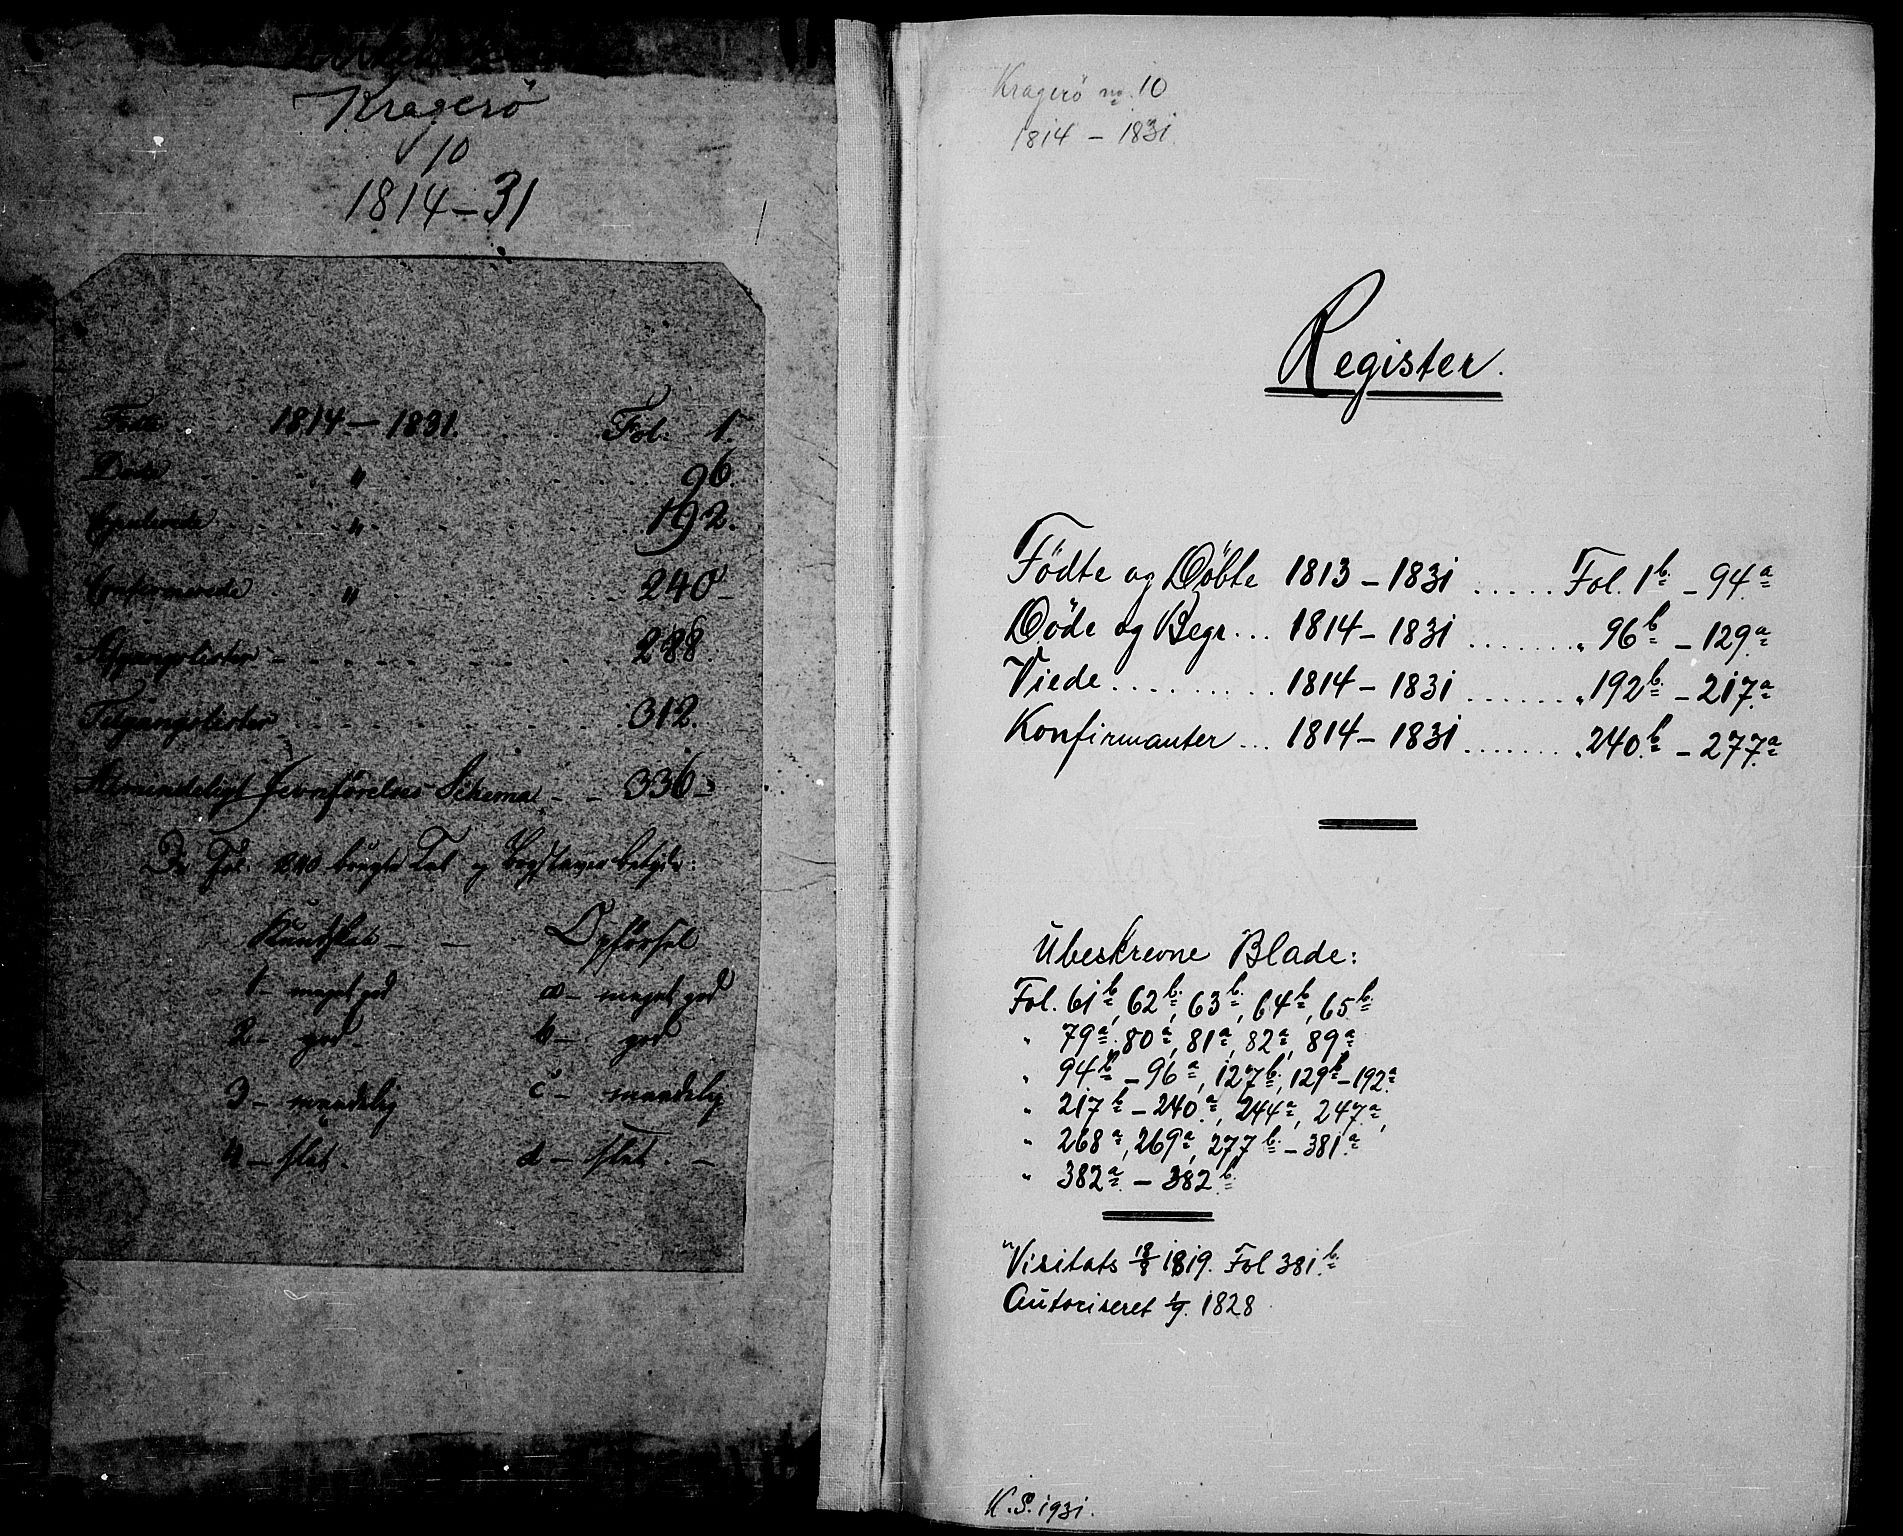 Kragerö
10
1814-31
Födte . . 1814 - 1831. . . . . Fol: 1.
Döde . . . . " . . . . 96.
Copulerede . . . . " . . . . 192.
Confirmerede . . . " . . . . 240-
Afgangslister - . . . . . . 288.
Tilgangslister . . . . . . 312.
Almindeligt Jevnförelses Schema - - 336-
De Fol: 240 brugte Tal og Bogstaver betyde:
Kundskab - - Opförsel
1- meget god a- meget god
2- god - b- god
3- maadelig c- maadelig
4- slet. d- slet. -
Kragerö no. 10
1814 - 1831.
Register.
Födte og Döbte 1813 - 1831 ..... Fol. 1b. - 94.a
Döde og Begr... 1814 - 1831 ....... " 96b - 129.a
Viede.......... 1814 - 1831 ....... " 192b. - 217.a
Konfirmanter ... 1814 - 1831 ....... " 240.b - 277.a
Ubeskrevne Blade:
Fol. 61b, 62b, 63b, 64b, 65b
" 79a, 80a, 81a, 82a, 89a
" 94b - 96a, 127b, 129b - 192a
" 217b - 240.a, 244a, 247.a,
" 268a, 269a, 277b. - 381.a
" 382a. - 382.b
"Visitats 18/8 1819. Fol 381.b
Autoriseret 1/9. 1828
K.S. 1931.